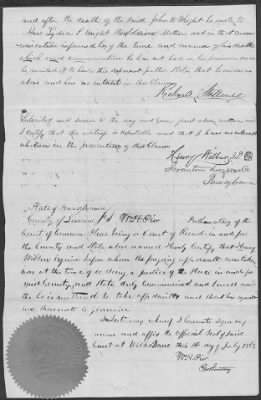 and after the death of the said John W. Wright he wrote to
Mrs Lydia P. Wright the soldiers Mother and in that Commu-
nication informed her of the time and manner of his death
which said communication he has not had in his possession
he is without to have this deponent further states that he is in no
wise and has no interest in this Claim
Richard Stillwell
Subscribed and sworn to the day and year first above written and
I certify that the witness is reputable and that I have no interest
whatever in the prosecution of this Claim
Henry Wilbur J.P.
Scranton Luzerne Co
Pennsylvania
State of Pennsylvania
County of Luzerne SS
Prothonotary of the
Court of Common Pleas being a Court of Record in and for
the County and State above named Hereby Certify that Henry
Wilbur Esquire before whom the foregoing affidavit was taken
was at the time of so doing a Justice of the Peace in and for
said County and State duly Commissioned and sworn and
that he is authorised to take affidavits and that his signature
thereunto is genuine
In testimony whereof I hereunto sign my
name and affix the official Seal of said
Court at Wilkes Barre this day of July 1863
Prothonotary